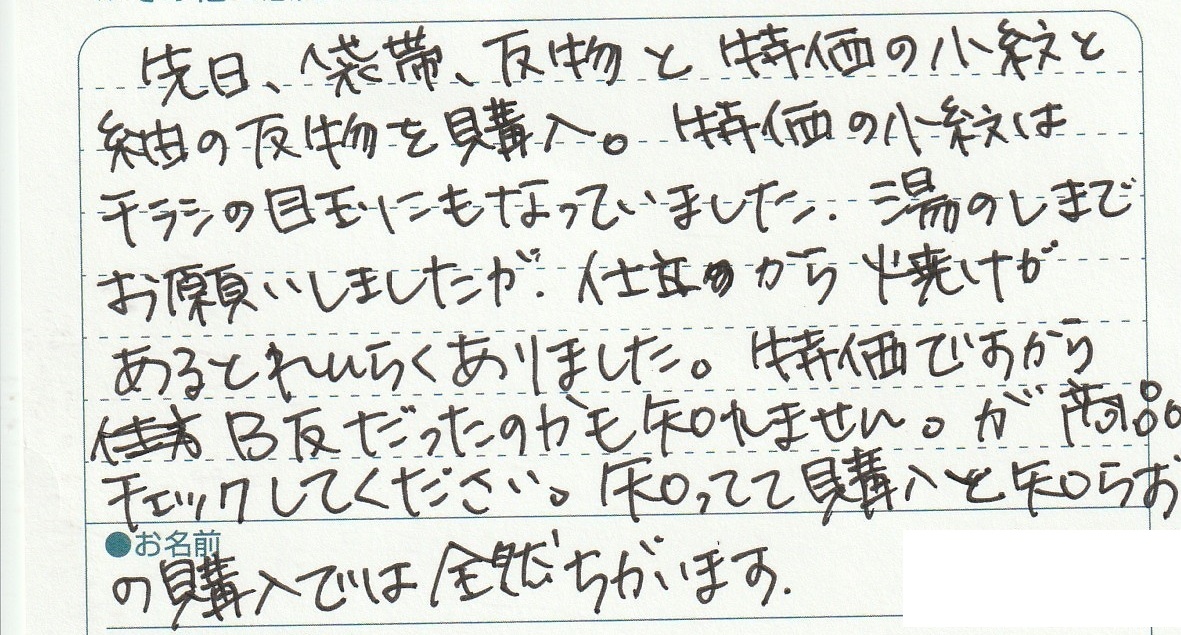 先日、袋帯、反物と特価の小紋と
紬の反物を購入。特価の小紋は
チラシの目玉にもなっていました。湯のしまで
お願いしましたが、仕立 から火焼けが
あるとれんらくありました。特価ですから
B反だったのかも知れません。が商品
チェックしてください。知ってて購入と知らお
●お名前
の購入では全然ちがいます.